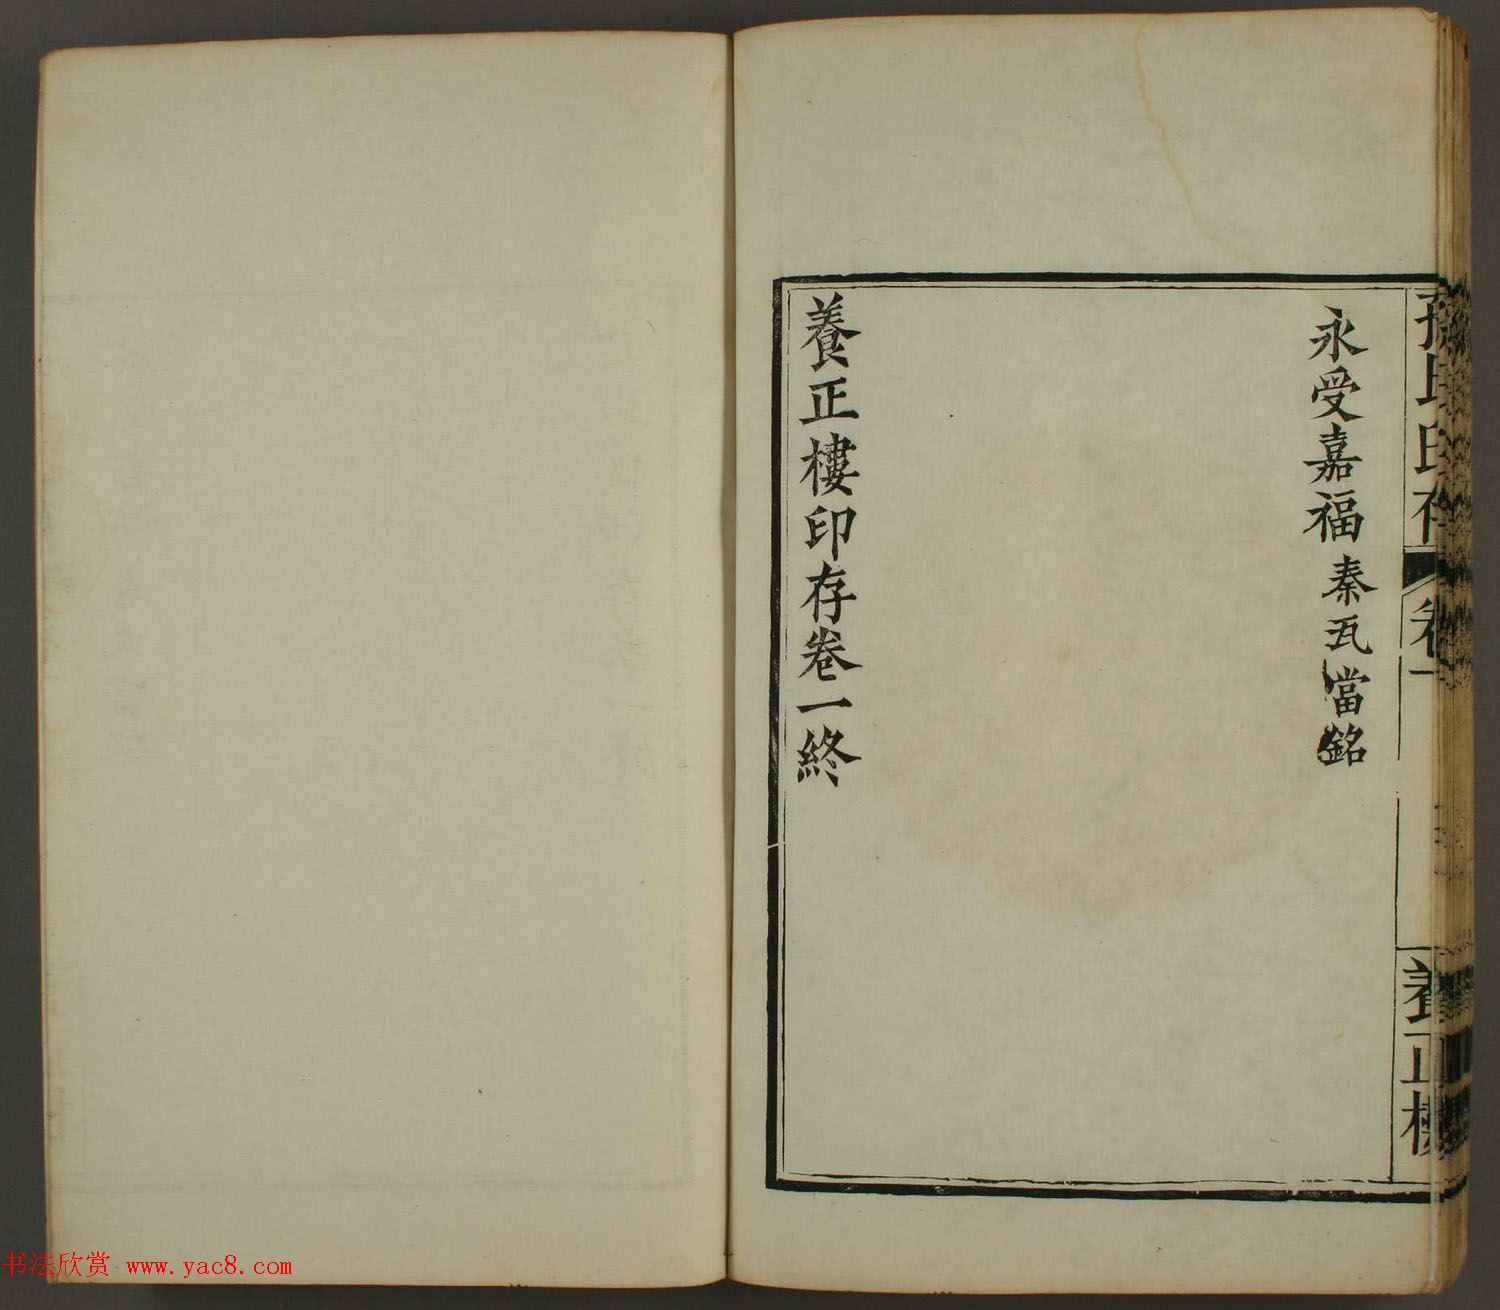 永受嘉福秦瓦當銘
養正樓印存卷一終
孫氏印存
卷一
養正樓
书法欣赏 www.yac8.com